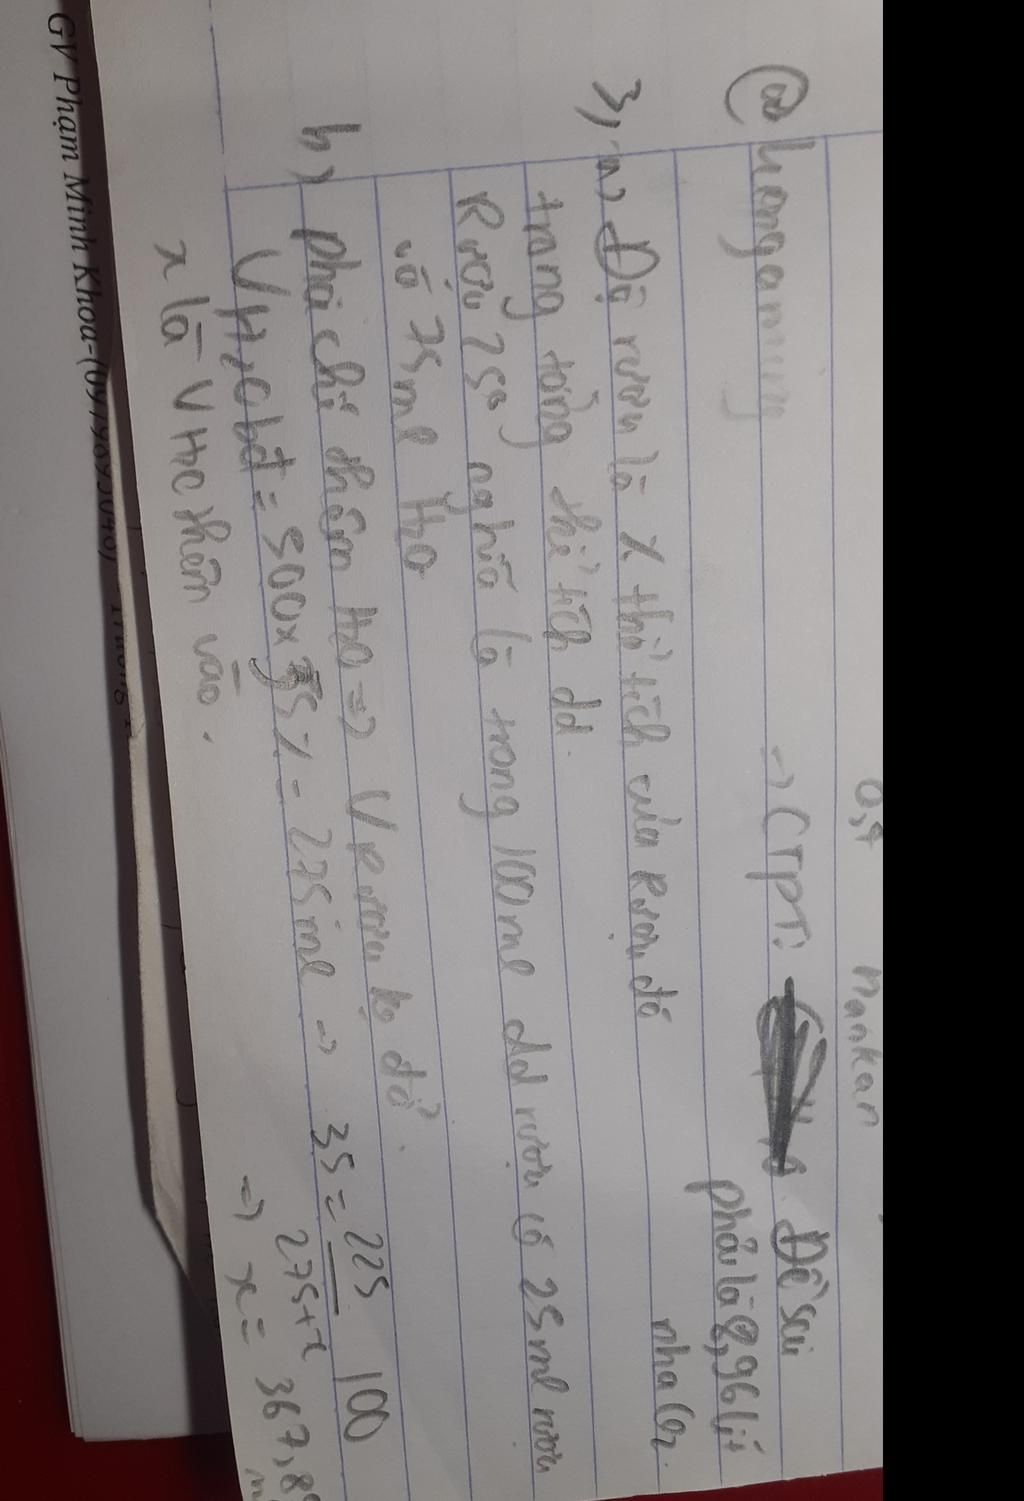 0,4 mankan
→ CTPT: Đề sai
phải là 8,96 lít
nha Co2
3) a) Độ rượu là % thể tích của Rượu đó
trong tổng thể tích dd.
Rượu 25° nghĩa là trong 100ml dd rượu có 25ml rượu
và 75ml H2O
b) phải chi thêm H2O => V Rượu ko đổi.
VH2Obđ = 500x 55% = 275ml → 35 = 225 / 275+x 100
x là VH2O thêm vào. → x = 367,8
GV Phạm Minh Khoa-(0979695040)